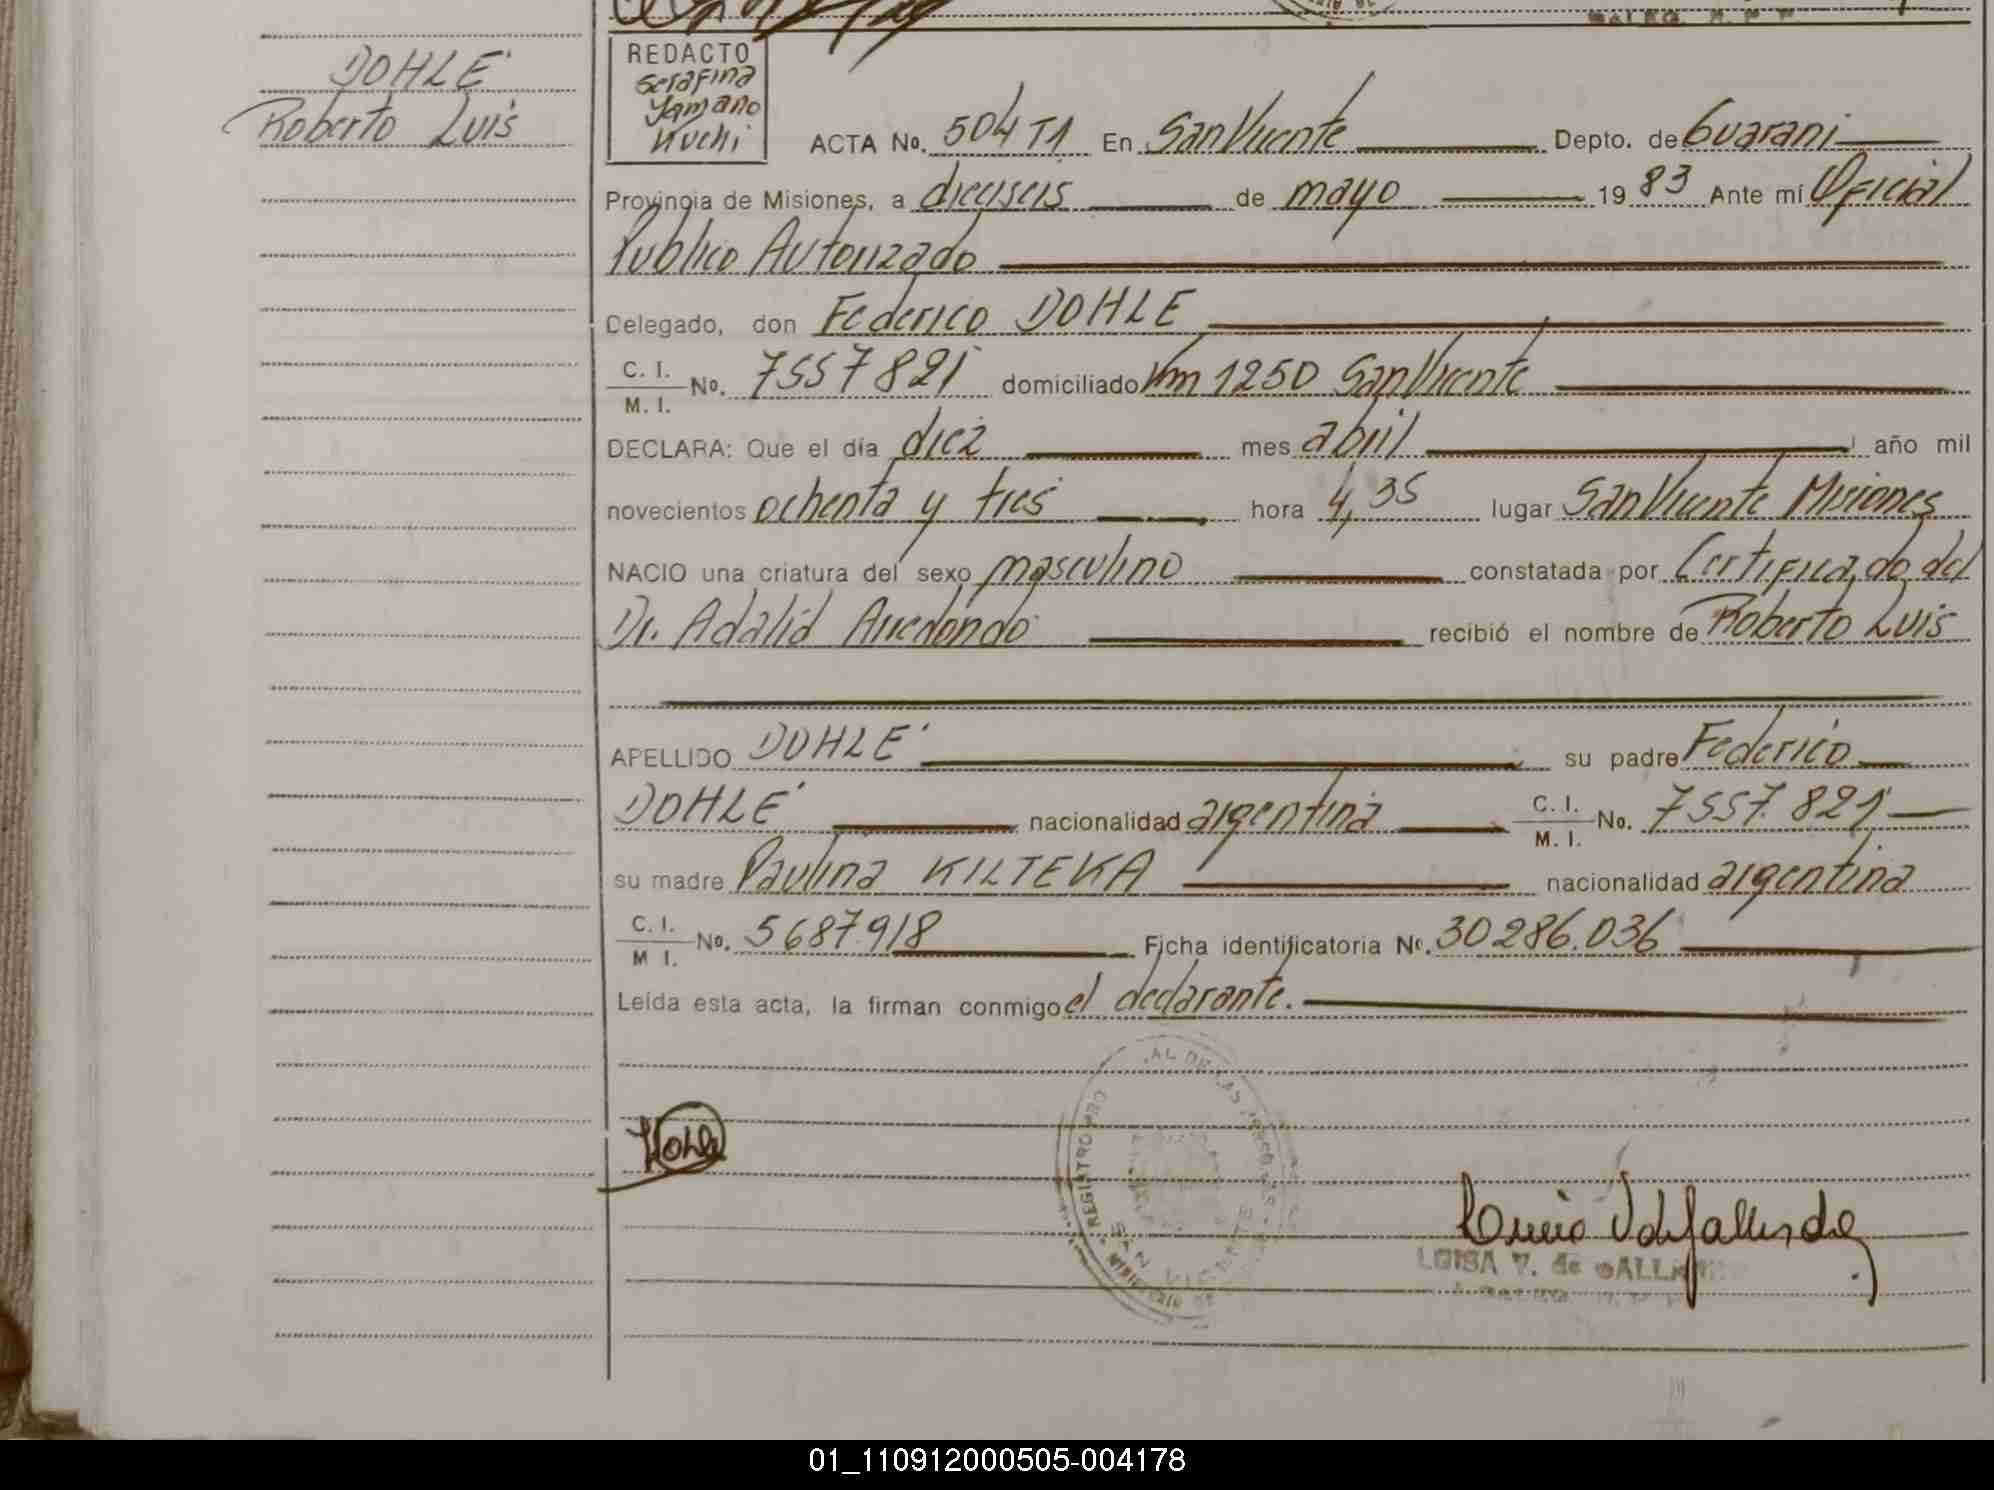 DOHLE
Roberto Luis
REDACTO
Serafina
Yamano
Kuchi
ACTA No. 504 T1 En San Vicente Depto. de Guarani
Provincia de Misiones, a dieciseis de mayo 19 83 Ante mí Oficial
Publico Autorizado
Delegado, don Federico DOHLE
C. I.
M. I. No. 7557821 domiciliado Km 1250 San Vicente
DECLARA: Que el día diez mes abril año mil
novecientos ochenta y tres hora 4,35 lugar San Vicente Misiones
NACIO una criatura del sexo masculino constatada por Certificado del
Dr. Adalid Arredondo recibió el nombre de Roberto Luis
APELLIDO DOHLE su padre Federico
DOHLE nacionalidad argentina C. I.
M. I. No. 7557.821
su madre Paulina KILTEKA nacionalidad argentina
C. I.
M I. No. 5687.918 Ficha identificatoria No. 30286.036
Leída esta acta, la firman conmigo el declarante.
REGISTRO PRO AL DE LAS PERSONAS
SAN VICENTE
LUISA V. de GALLA
01_110912000505-004178